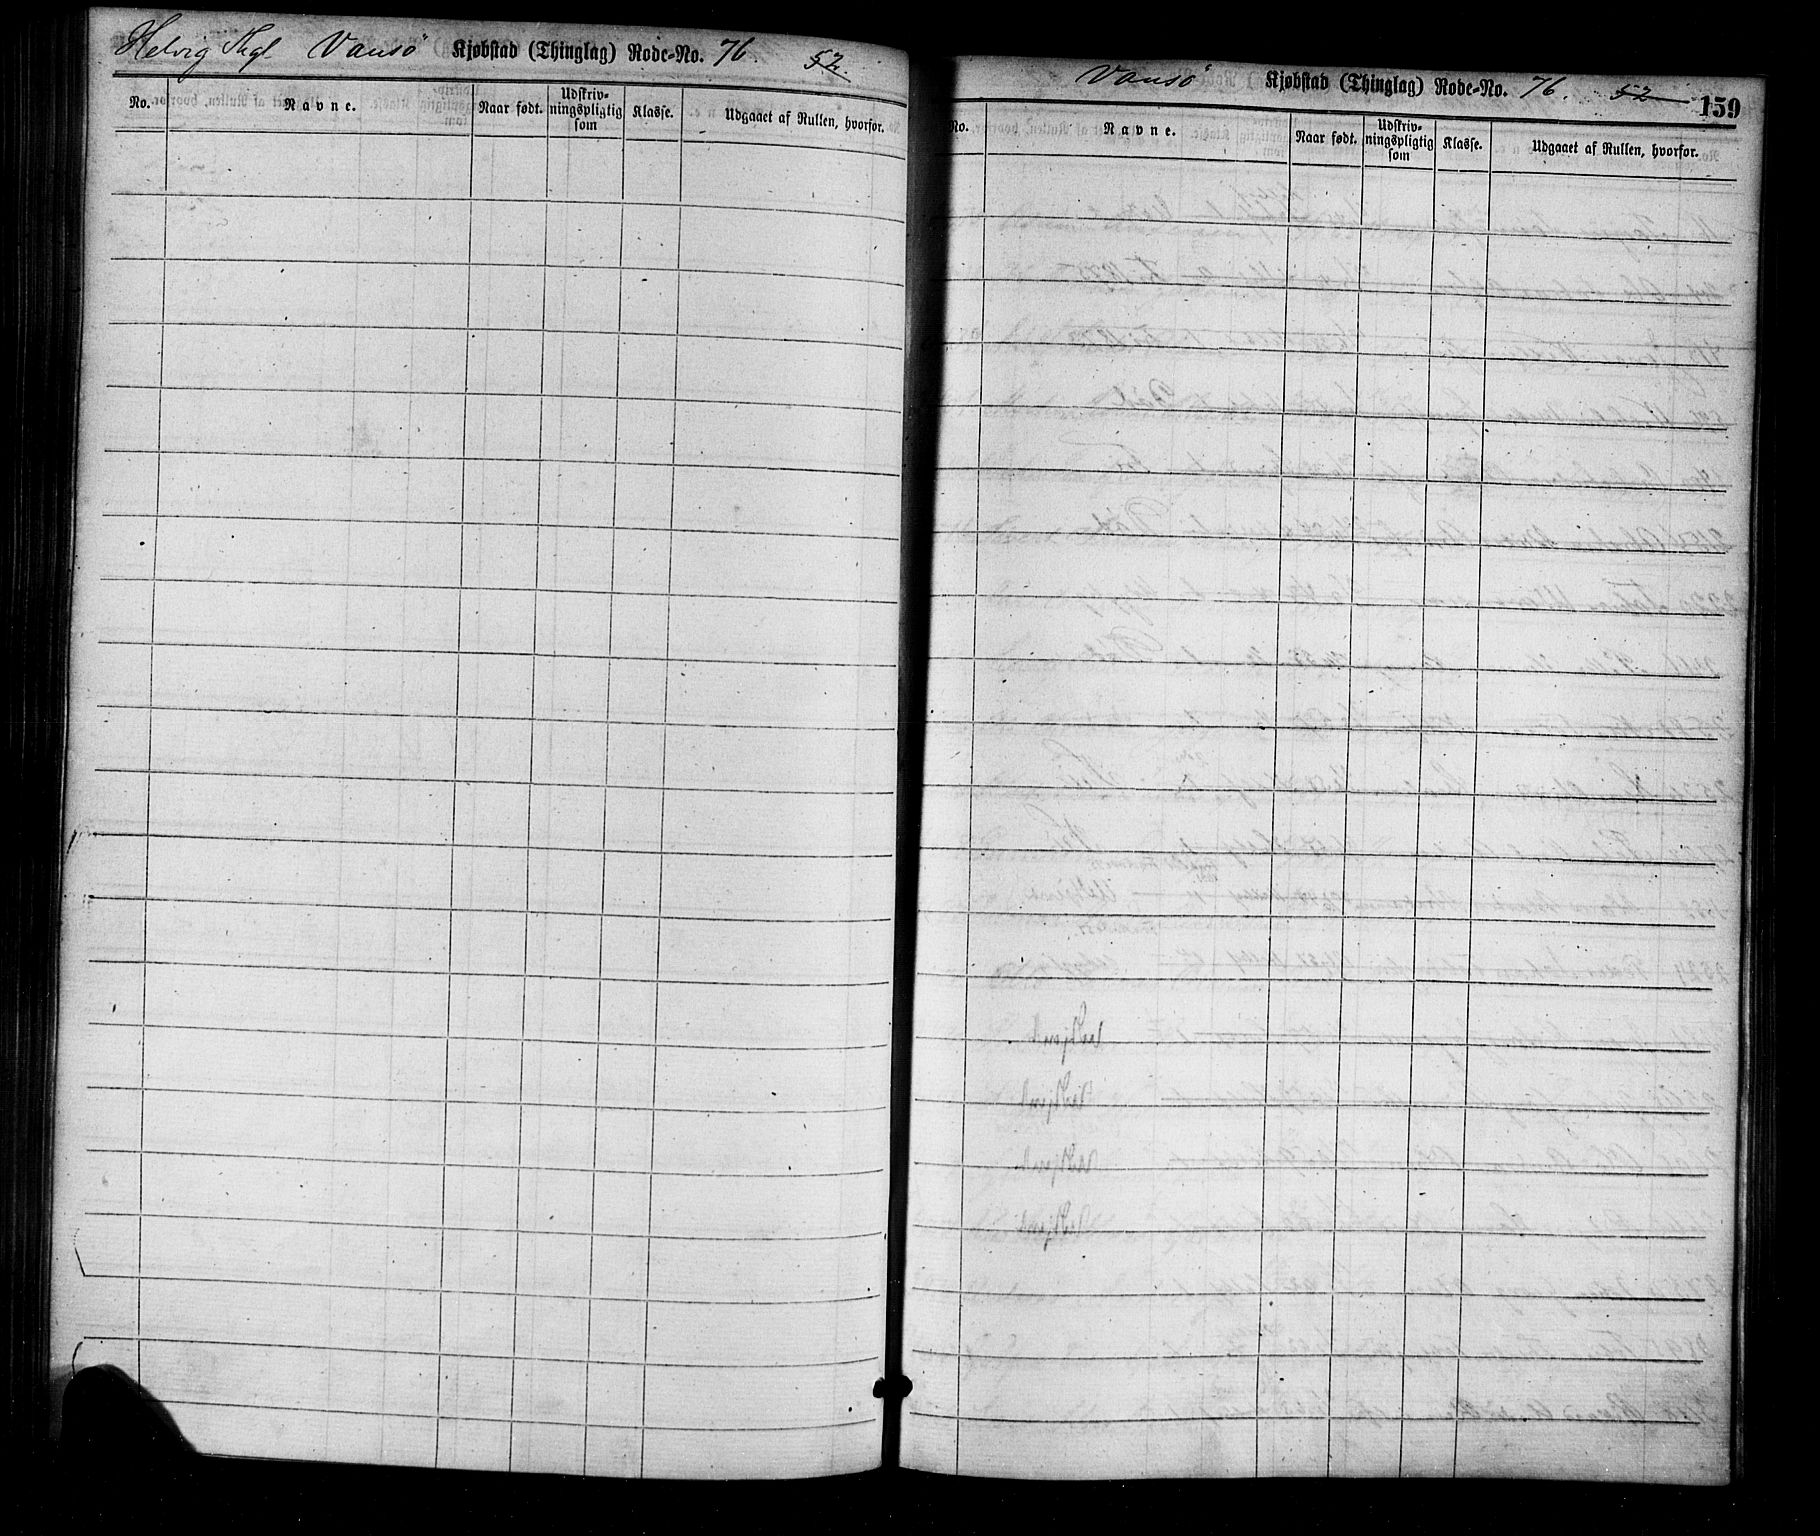 Helvig Thgl Vansö Kjøbstad (Thinglag) Rode-No. 76. 52.
No. Navne. Naar født. Udskriv-ningspligtig som Klasse. Udgaaet af Rullen, hvorfor.
Vansö Kjøbstad (Thinglag) Rode-No. 76. 52 159
No. Navne. Naar født. Udskriv-ningspligtig som Klasse. Udgaaet af Rullen, hvorfor.